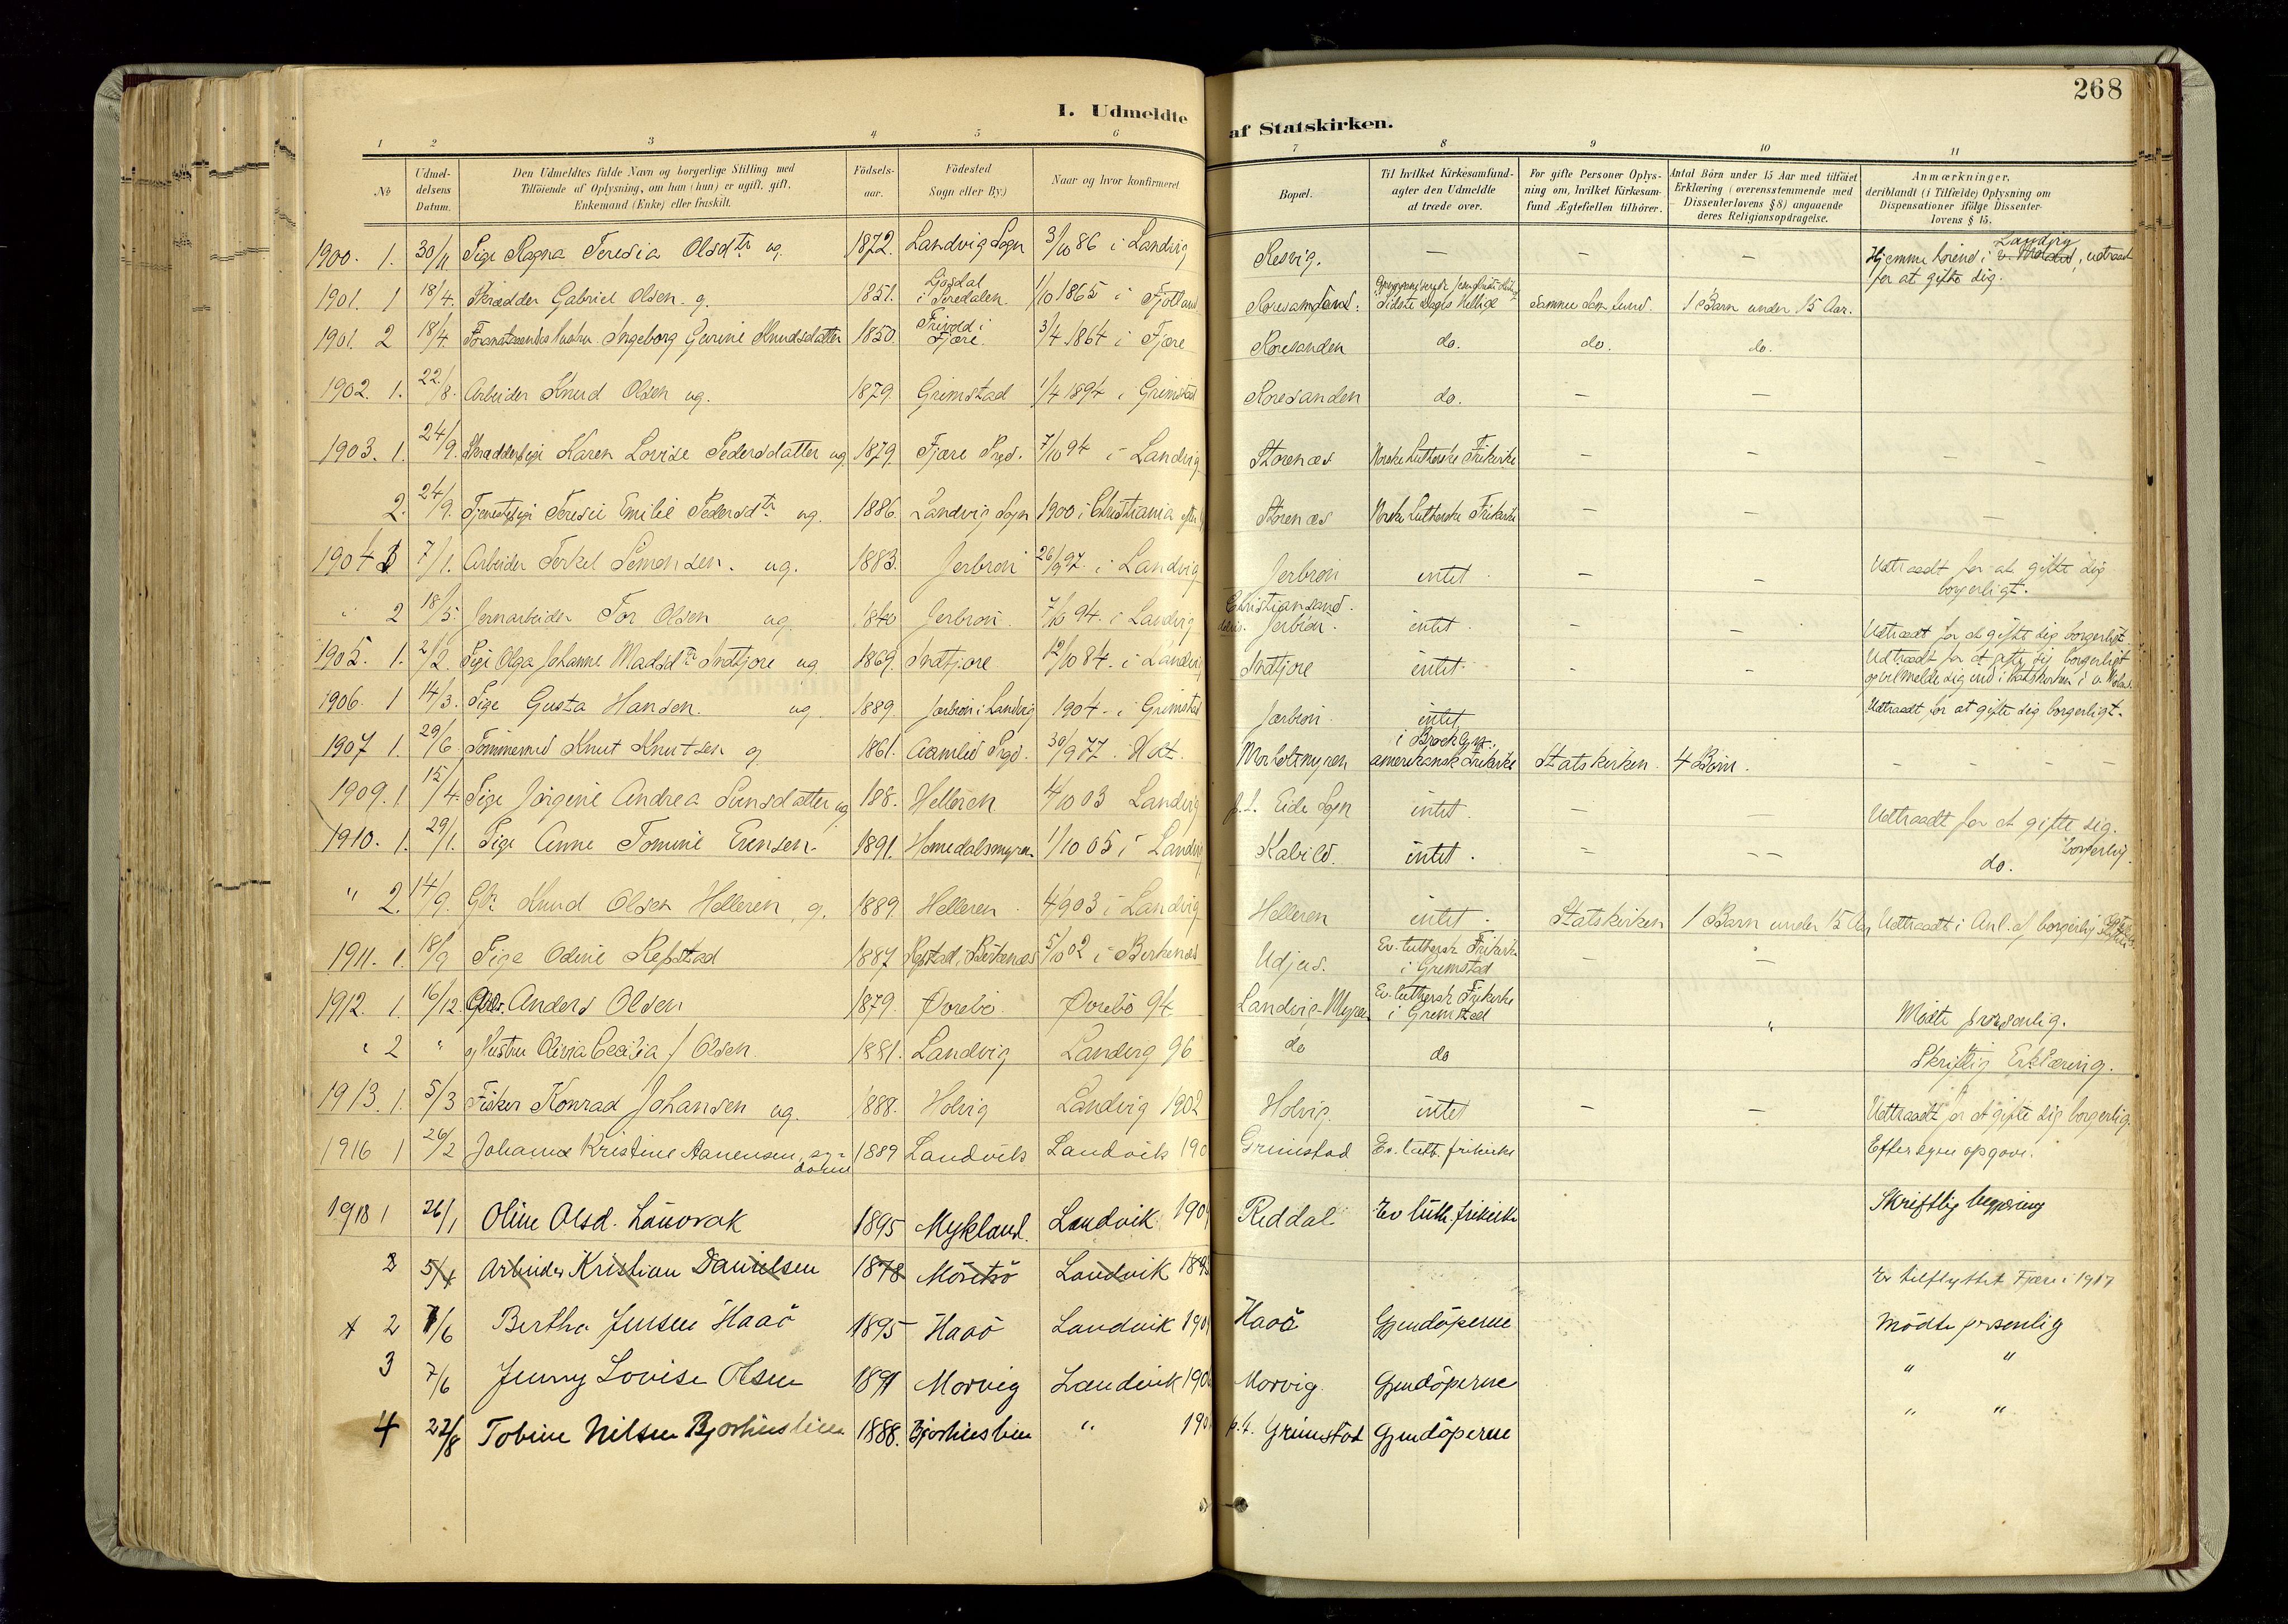 268
I. Udmeldte af Statskirken.
1 2 3 4 5 6 7 8 9 10 11
№ | Udmel-delsens Datum. | Den Udmeldtes fulde Navn og borgerlige Stilling med Tilföiende af Oplysning, om han (hun) er ugift, gift, Enkemand (Enke) eller fraskilt. | Födsels-aar. | Födested Sogn eller By) | Naar og hvor konfirmeret | Bopæl. | Til hvilket Kirkesamfund-agter den Udmeldte at træde over. | For gifte Personer Oplys-ning om, hvilket Kirkesam-fund Ægtefællen tilhörer. | Antal Börn under 15 Aar med tilföiet Erklæring (overensstemmende med Dissenterlovens §8) angaaende deres Religionsopdragelse. | Anmærkninger, deriblandt (i Tilfælde) Oplysning om Dispensationer ifölge Dissenter-lovens § 15.
1900. 1. | 30/11 | Pige Ragna Teresia Olsdtr ug. | 1872. | Landvig Sogn | 3/10 86 i Landvig | Resvig. | — | — | — | Hjemmehörend i Landvig, udtraadt for at gifte sig.
1901. 1 | 18/4. | Skrædder Gabriel Olsen. g. | 1851. | i Siredalen. | 1/10 1865 i Fjotland | Sidste Dages Hellige | samme Samfund. | 1 Barn under 15 Aar.
1901. 2 | 18/4. | Ingeborg Gurine Knudsdatter | 1850. | Frivold i Fjære. | 3/4 1864 i Fjære | Roresanden | do. | do. | do.
1902. 1. | 22/8. | Arbeider Knud Olsen ug. | 1879. | Grimstad | 1/4 1894 i Grimstad | Roresanden | do. | — | —
1903. 1. | 24/9. | Karen Lovise Pedersdatter ug. | 1879. | Fjære Prgd. | 7/10 94 i Landvig | Storenæs | Norske Lutherske Frikirke | — | — | — —
2. | 24/9. | Tjenestepige Teresie Emilie Pedersdtr ug. | 1886. | Landvig Sogn | 1900 i Christiania | Storenæs | Norske Lutherske Frikirke | — | —
1904 1 | 7/1. | Arbeider Terkel Simonsen. ug. | 1883. | Jerbron | 26/9 97. i Landvig | Jerbron | intet. | — | — | Udtraadt for at gifte sig borgerligt.
" 2 | 18/5. | Jernarbeider Tor Olsen ug. | Jerbron. | 7/10 94. i Landvig | Christiansand. Jerbron. | intet. | — | — | Udtraadt for at gifte sig borgerligt
1905. 1. | 2/2. | Pige Olga Johanne Madsdtr Indtjore ug | 1869. | Indtjore | 12/10 84. i Landvig | Indtjore | intet. | — | — | Udtraadt for at gifte sig borgerligt og vil melde sig ind i Statskirken i
1906. 1 | 14/3. | Pige Gusta Hansen. ug | 1889 | Jærbron i Landvig | 1904. i Grimstad | Jærbron. | intet | Udtraadt for at gifte sig borgerligt.
1907 1. | 29/6. | Tömmermd Knut Knutsen g | 1861. | Aamlid Prgd. | 30/9 77. | Morholtmyren | amerikansk Frikirke | Statskirken. | 4 Börn. | — — —
1909. 1 | 15/4. | Pige Jörgine Andrea ug | 188. | Helleren | 4/10 03 Landvig | p.t. Eide Sogn | intet. | — | — | Udtraadt for at gifte sig. borgerlig.
1910. 1. | 29/1. | Pige Anne Tomine Evensen. | 1891. | Homedalsmyren | 1/10 05 i Landvig | Kalvild. | intet. | — | — — | do.
" 2. | 14/9. | Gbr. Knud Olsen Helleren, g. | 1889. | Helleren | 4/9 03 i Landvig | Helleren | intet. | Statskirken | 1 Barn under 15 Aar | Udtraadt i Anl. af borgerlig
1911. 1. | 18/9 | Pige Odine Repstad | 1887 | Repstad, Birkenæs | 5/10 02 i Birkenæs | Udjus. | Ev. luthersk Frikirke i Grimstad | — | —
1912. 1. | 16/12. | Anders Olsen | 1879. | Dovrebö. | Dovrebö 94 | Landvig-Myren | Ev. luthersk Frikirke i Grimstad | " | Mödte personlig.
" 2 | " | og Hustru Olivia Cecilia J Olsen. | 1881. | Landvig | Landvig 96 | do | do | Skriftlig Erklæring.
1913. 1. | 5/3 | Fisker Konrad Johansen ug. | 1888. | Holvig | Landvig 1902 | Holvig. | intet | — | — | Udtraadt for at gifte sig borgerlig.
1916 1 | 26/2 | Johanna Kristine Aanensen, | 1889 | Landvik | Landvik 190 | Grimstad | Ev. luth. frikirke | Efter egen opgave.
1918 1 | 26/1 | Oline Olsd. Lauvrak | 1895 | Mykland. | Landvik 190 | Reddal | Ev luth. frikirke | Skriftlig begjæring
2 | 5/4 | Arbeider Kristian Danielsen | 1878 | Landvik 189 | Er tilflyttet Fjære i 1917
2 | 7/6 | Bertha Jensen Haaö | 1895 | Haaö | Landvik 190 | Haaö | Gjendöperne | Mödte personlig
3 | 7/6 | Jenny Lovise Olsen | 1891 | Morvig | Landvik 190 | Morvig. | Gjendöperne | " "
4 | 22/8 | Tobine Nilsen | 1888. | " 190 | p.t. Grimstad | Gjendöperne | " "